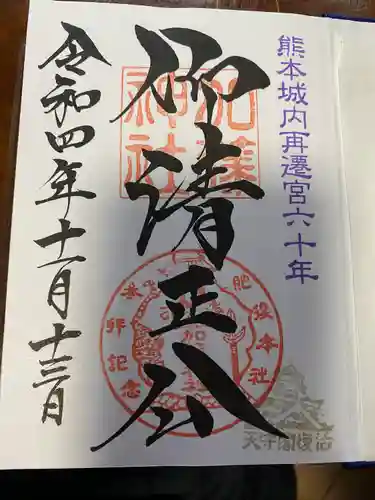 熊本城内再遷宮六十年
御請正公
加藤神社
肥後本社
参拝記念
天守閣復活
令和四年十一月十三日